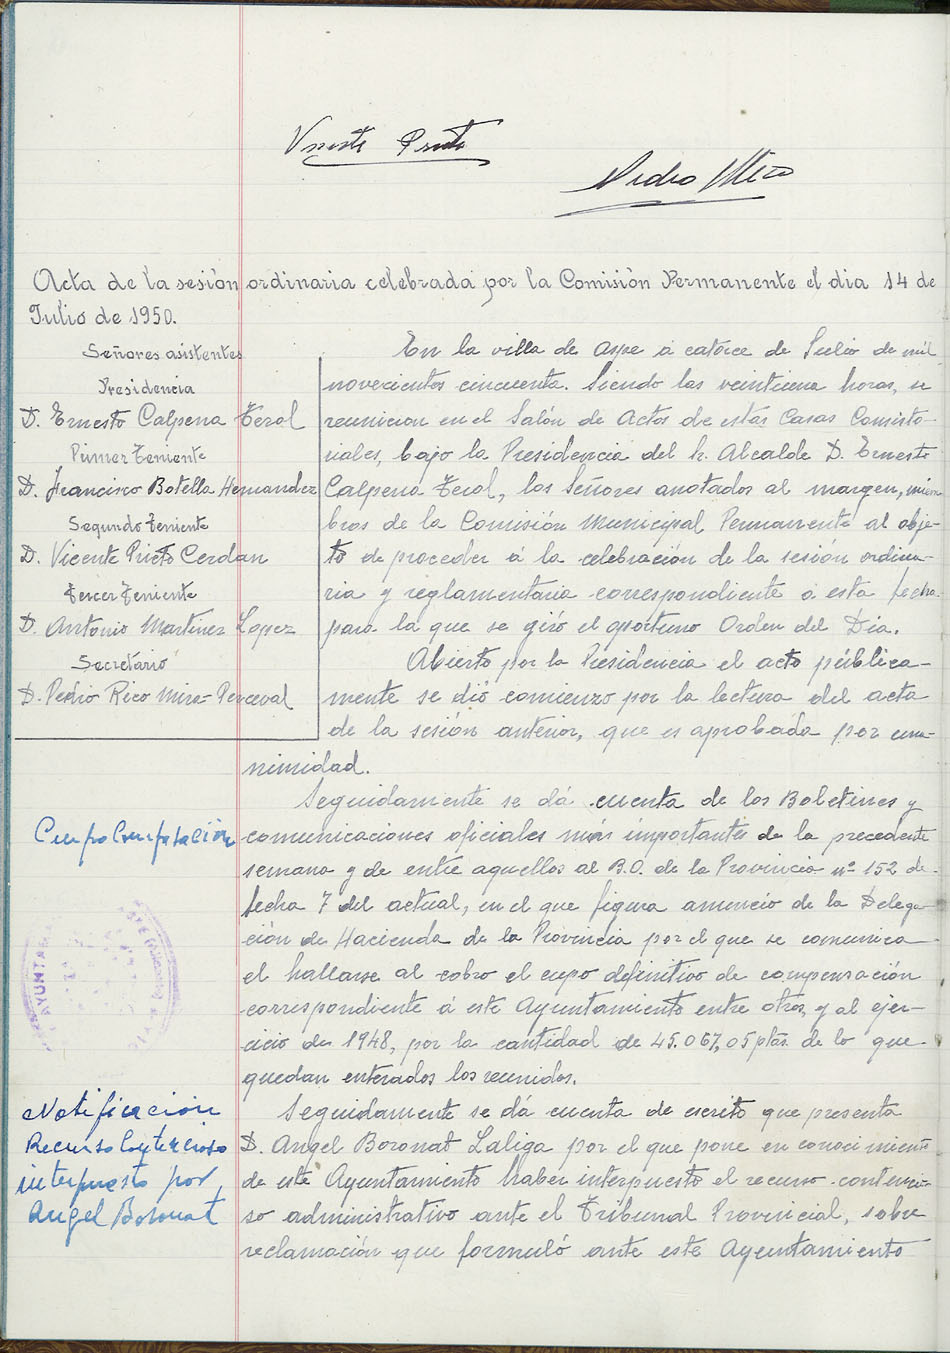 Vicente Prieto
Pedro Rico
Acta de la sesión ordinaria celebrada por la Comisión Permanente el dia 14 de
Julio de 1950.
Señores asistentes
Presidencia
D. Ernesto Calpena Terol
Primer Teniente
D. Francisco Botella Hernandez
Segundo Teniente
D. Vicente Prieto Cerdan
Tercer Teniente
D. Antonio Martinez Lopez
Secretario
D. Pedro Rico Mira-Perceval
En la villa de Aspe á catorce de Julio de mil
novecientos cincuenta. Siendo las veintiuna horas, se
reunieron en el Salón de Actos de estás Casas Consisto-
riales, bajo la Presidencia del Sr. Alcalde D. Ernesto
Calpena Terol, los Señores anotados al margen, miem
bros de la Comisión Municipal Permanente al obje-
to de proceder á la celebración de la sesión ordina-
ria y reglamentaria correspondiente á esta fecha
para la que se giró el oportuno Orden del Dia.
Abierto por la Presidencia el acto pública-
mente se dió comienzo por la lectura del acta
de la sesión anterior, que es aprobada por una-
nimidad.
Cupo Compensación
Seguidamente se dá cuenta de los Boletines y
comunicaciones oficiales más importantes de la precedente
semana y de entre aquellos al B.O. de la Provincia nº 152 de
fecha 7 del actual, en el que figura anuncio de la Delega-
ción de Hacienda de la Provincia por el que se comunica
el hallarse al cobro el cupo definitivo de compensación
correspondiente á este Ayuntamiento entre otros, y al ejer-
cicio de 1948, por la cantidad de 45.067,05 ptas. de lo que
quedan enterados los reunidos.
AYUNTA
Notificación
Recurso Contencioso
interpuesto por
Angel Boronat
Seguidamente se dá cuenta de escrito que presenta
D. Angel Boronat Laliga por el que pone en conocimiento
de este Ayuntamiento haber interpuesto el recurso contencio-
so administrativo ante el Tribunal Provincial, sobre
reclamación que formuló ante este Ayuntamiento